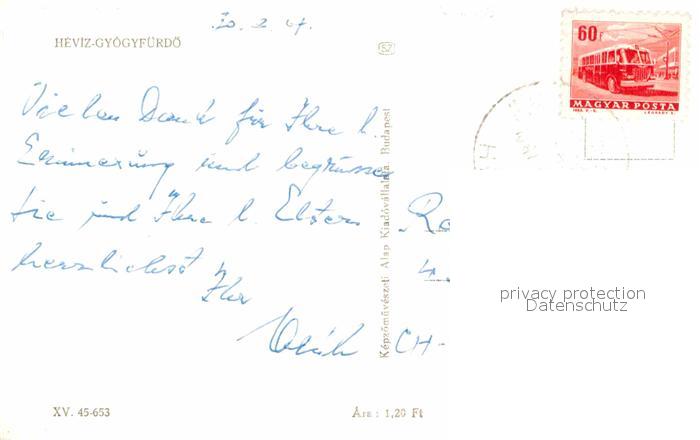 20. 2. 67.
HÉVÍZ-GYÓGYFÜRDŐ
SZ
60 f
MAGYAR POSTA
Vielen Dank für Ihre l.
Erinnerung und begrüsse
Sie und Ihre l. Eltern
herzlichst Ihr
Képzőművészeti Alap Kiadóvállalata, Budapest
Re
4
CH-
privacy protection
Datenschutz
XV. 45-653
Ára : 1,20 Ft